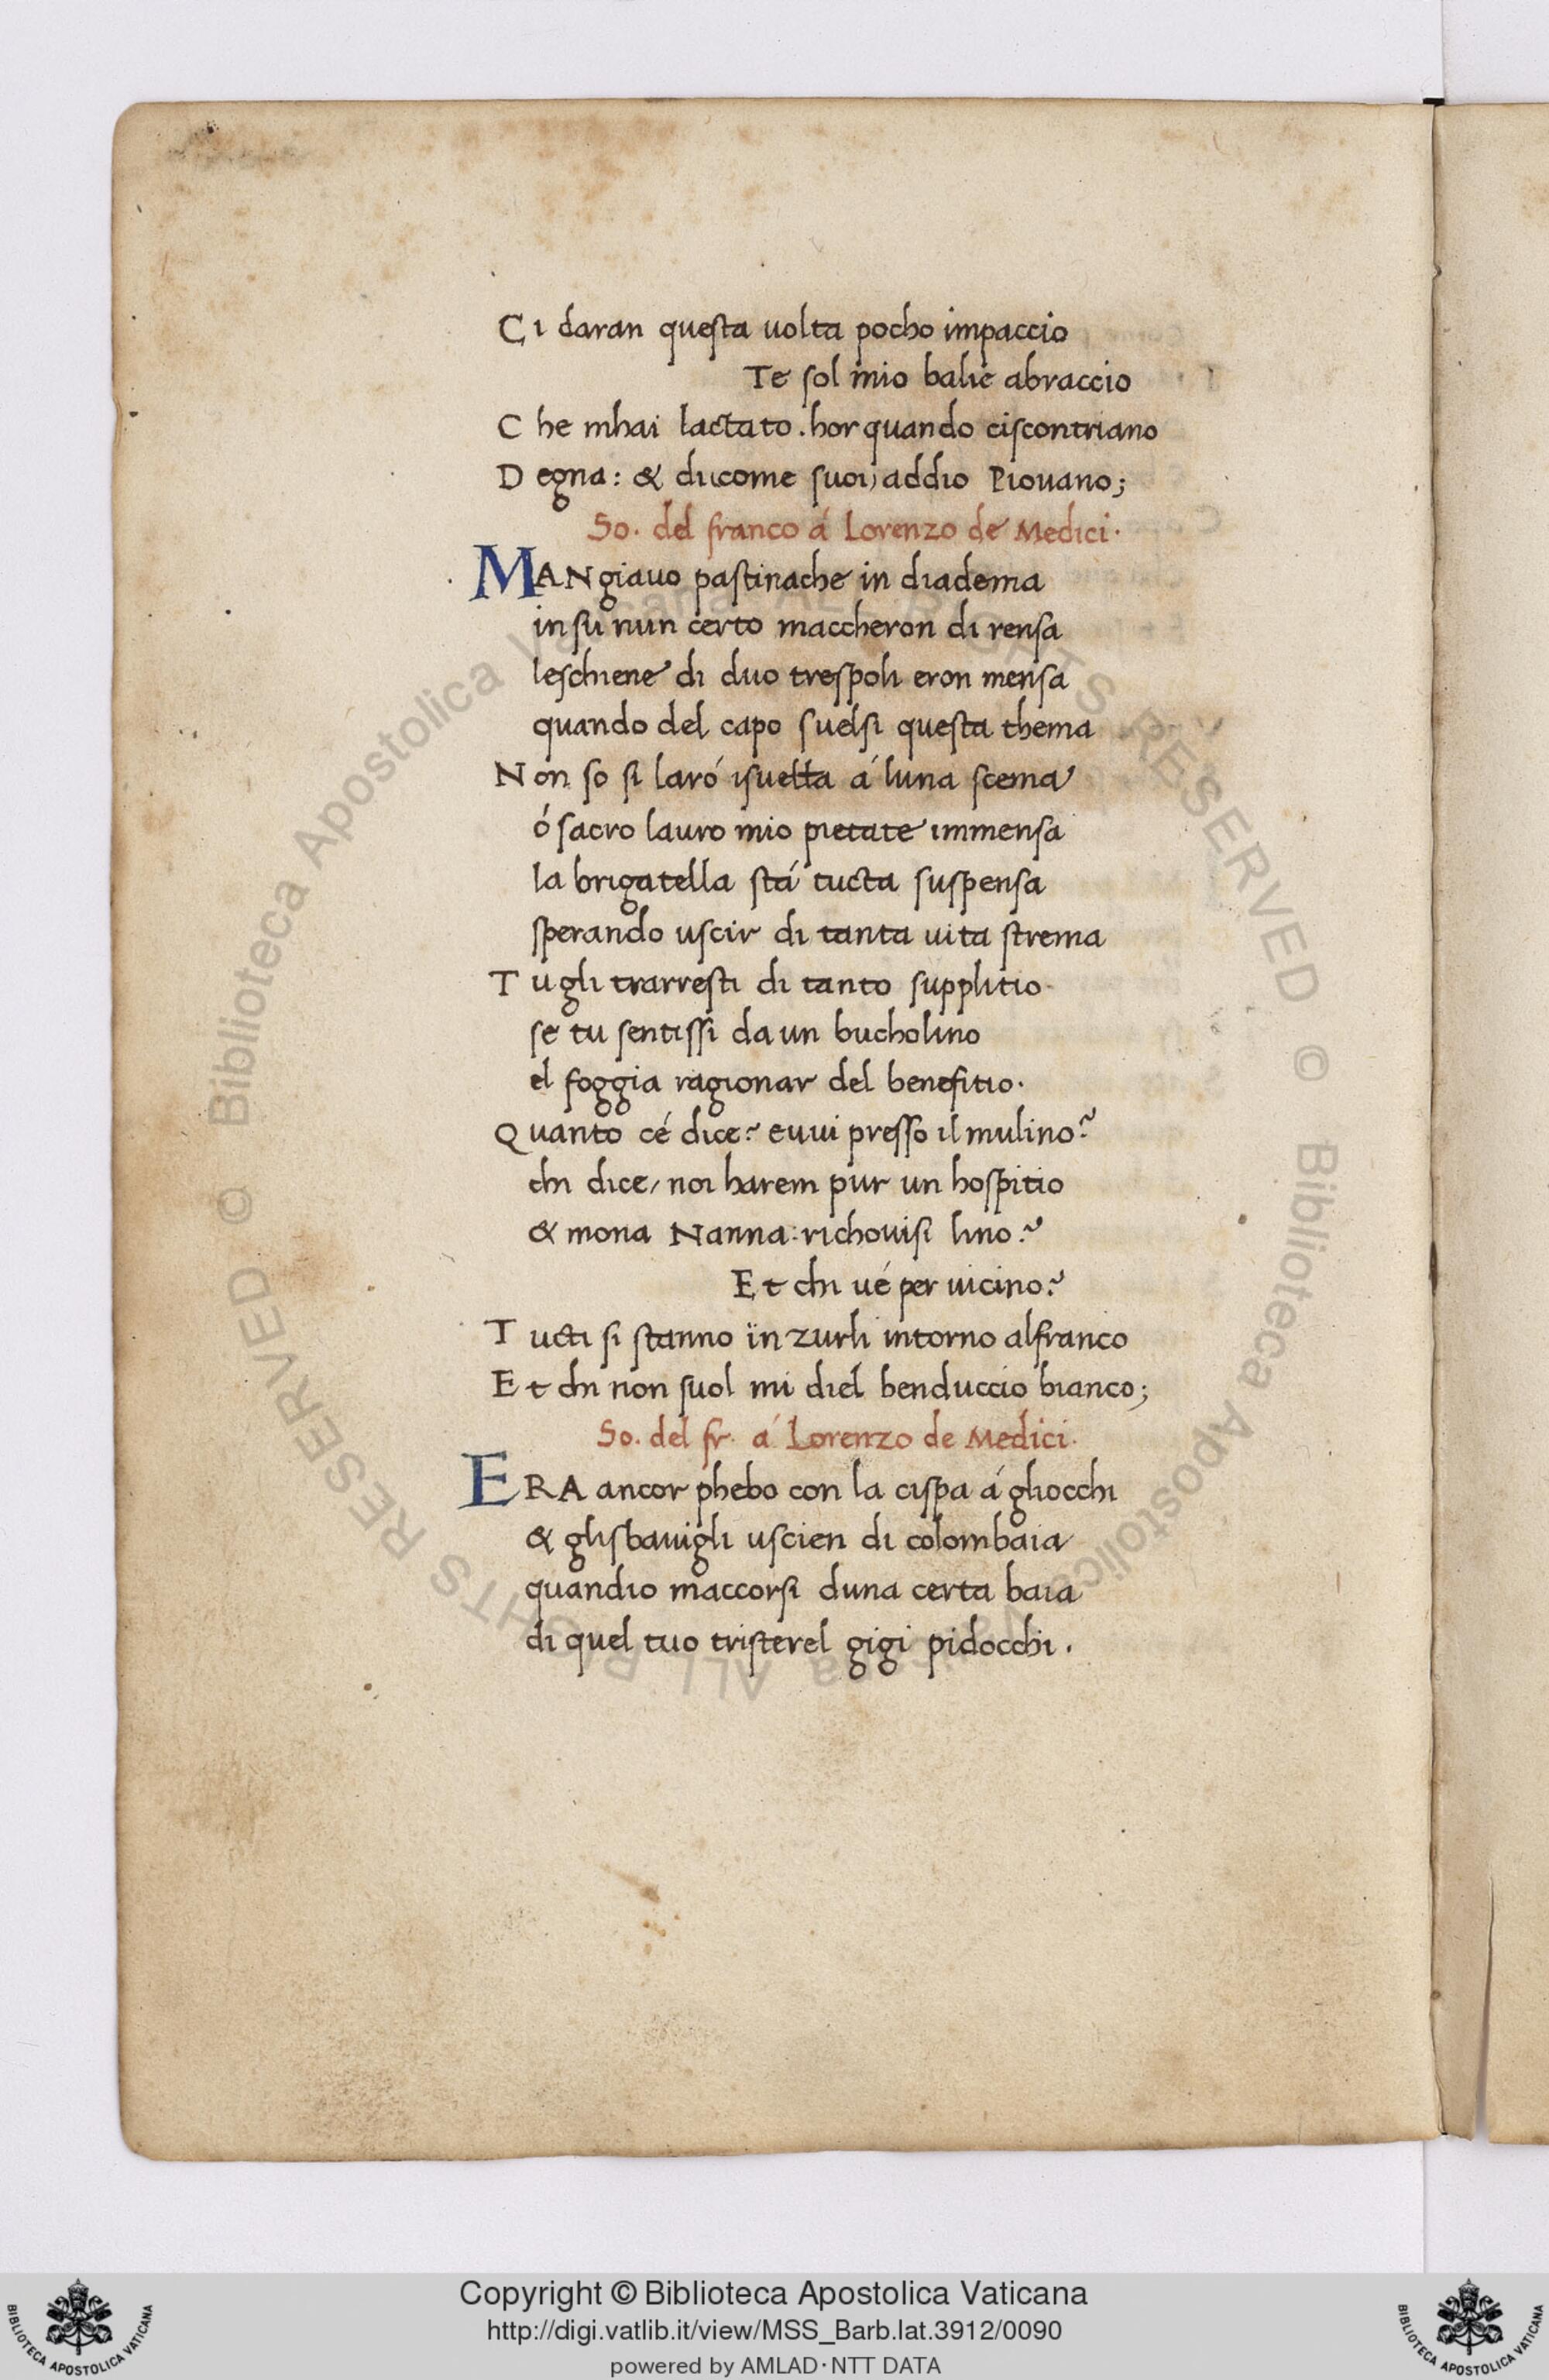 Ci daran questa uolta pocho impaccio
Te sol mio balie abraccio
Che mhai lactato . hor quando ciscontriano
Degna : & di come suoi, addio Piouano ;
So. del franco á Lorenzo de Medici .
MANgiauo pastinache in diadema
insu nun certo maccheron di rensa
leschiene di duo trespoli eron mensa
quando del capo suelsi questa thema
Non so si laró isuelta á luna scema
ó sacro lauro mio pietate immensa
la brigatella stá tucta suspensa
sperando uscir di tanta uita strema
Tu gli trarresti di tanto supplitio .
se tu sentissi da un bucholino
el foggia ragionar del benefitio .
Quanto cé dice ? euui presso il mulino ?
chi dice, noi harem pur un hospitio
& mona Nanna : richouisi lino ?
Et chi ué per uicino ?
Tucti si stanno in zurli intorno alfranco
Et chi non suol mi diel benduccio bianco ;
So. del fr. á Lorenzo de Medici .
ERA ancor phebo con la cispa á gliocchi
& glisbauigli uscien di colombaia
quandio maccorsi duna certa baia
di quel tuo tristerel gigi pidocchi .
© Biblioteca Apostolica Vaticana ALL RIGHTS RESERVED © Biblioteca Apostolica Vaticana ALL RIGHTS RESERVED
Copyright © Biblioteca Apostolica Vaticana
http://digi.vatlib.it/view/MSS_Barb.lat.3912/0090
powered by AMLAD·NTT DATA
BIBLIOTECA APOSTOLICA VATICANA
BIBLIOTECA APOSTOLICA VATICANA